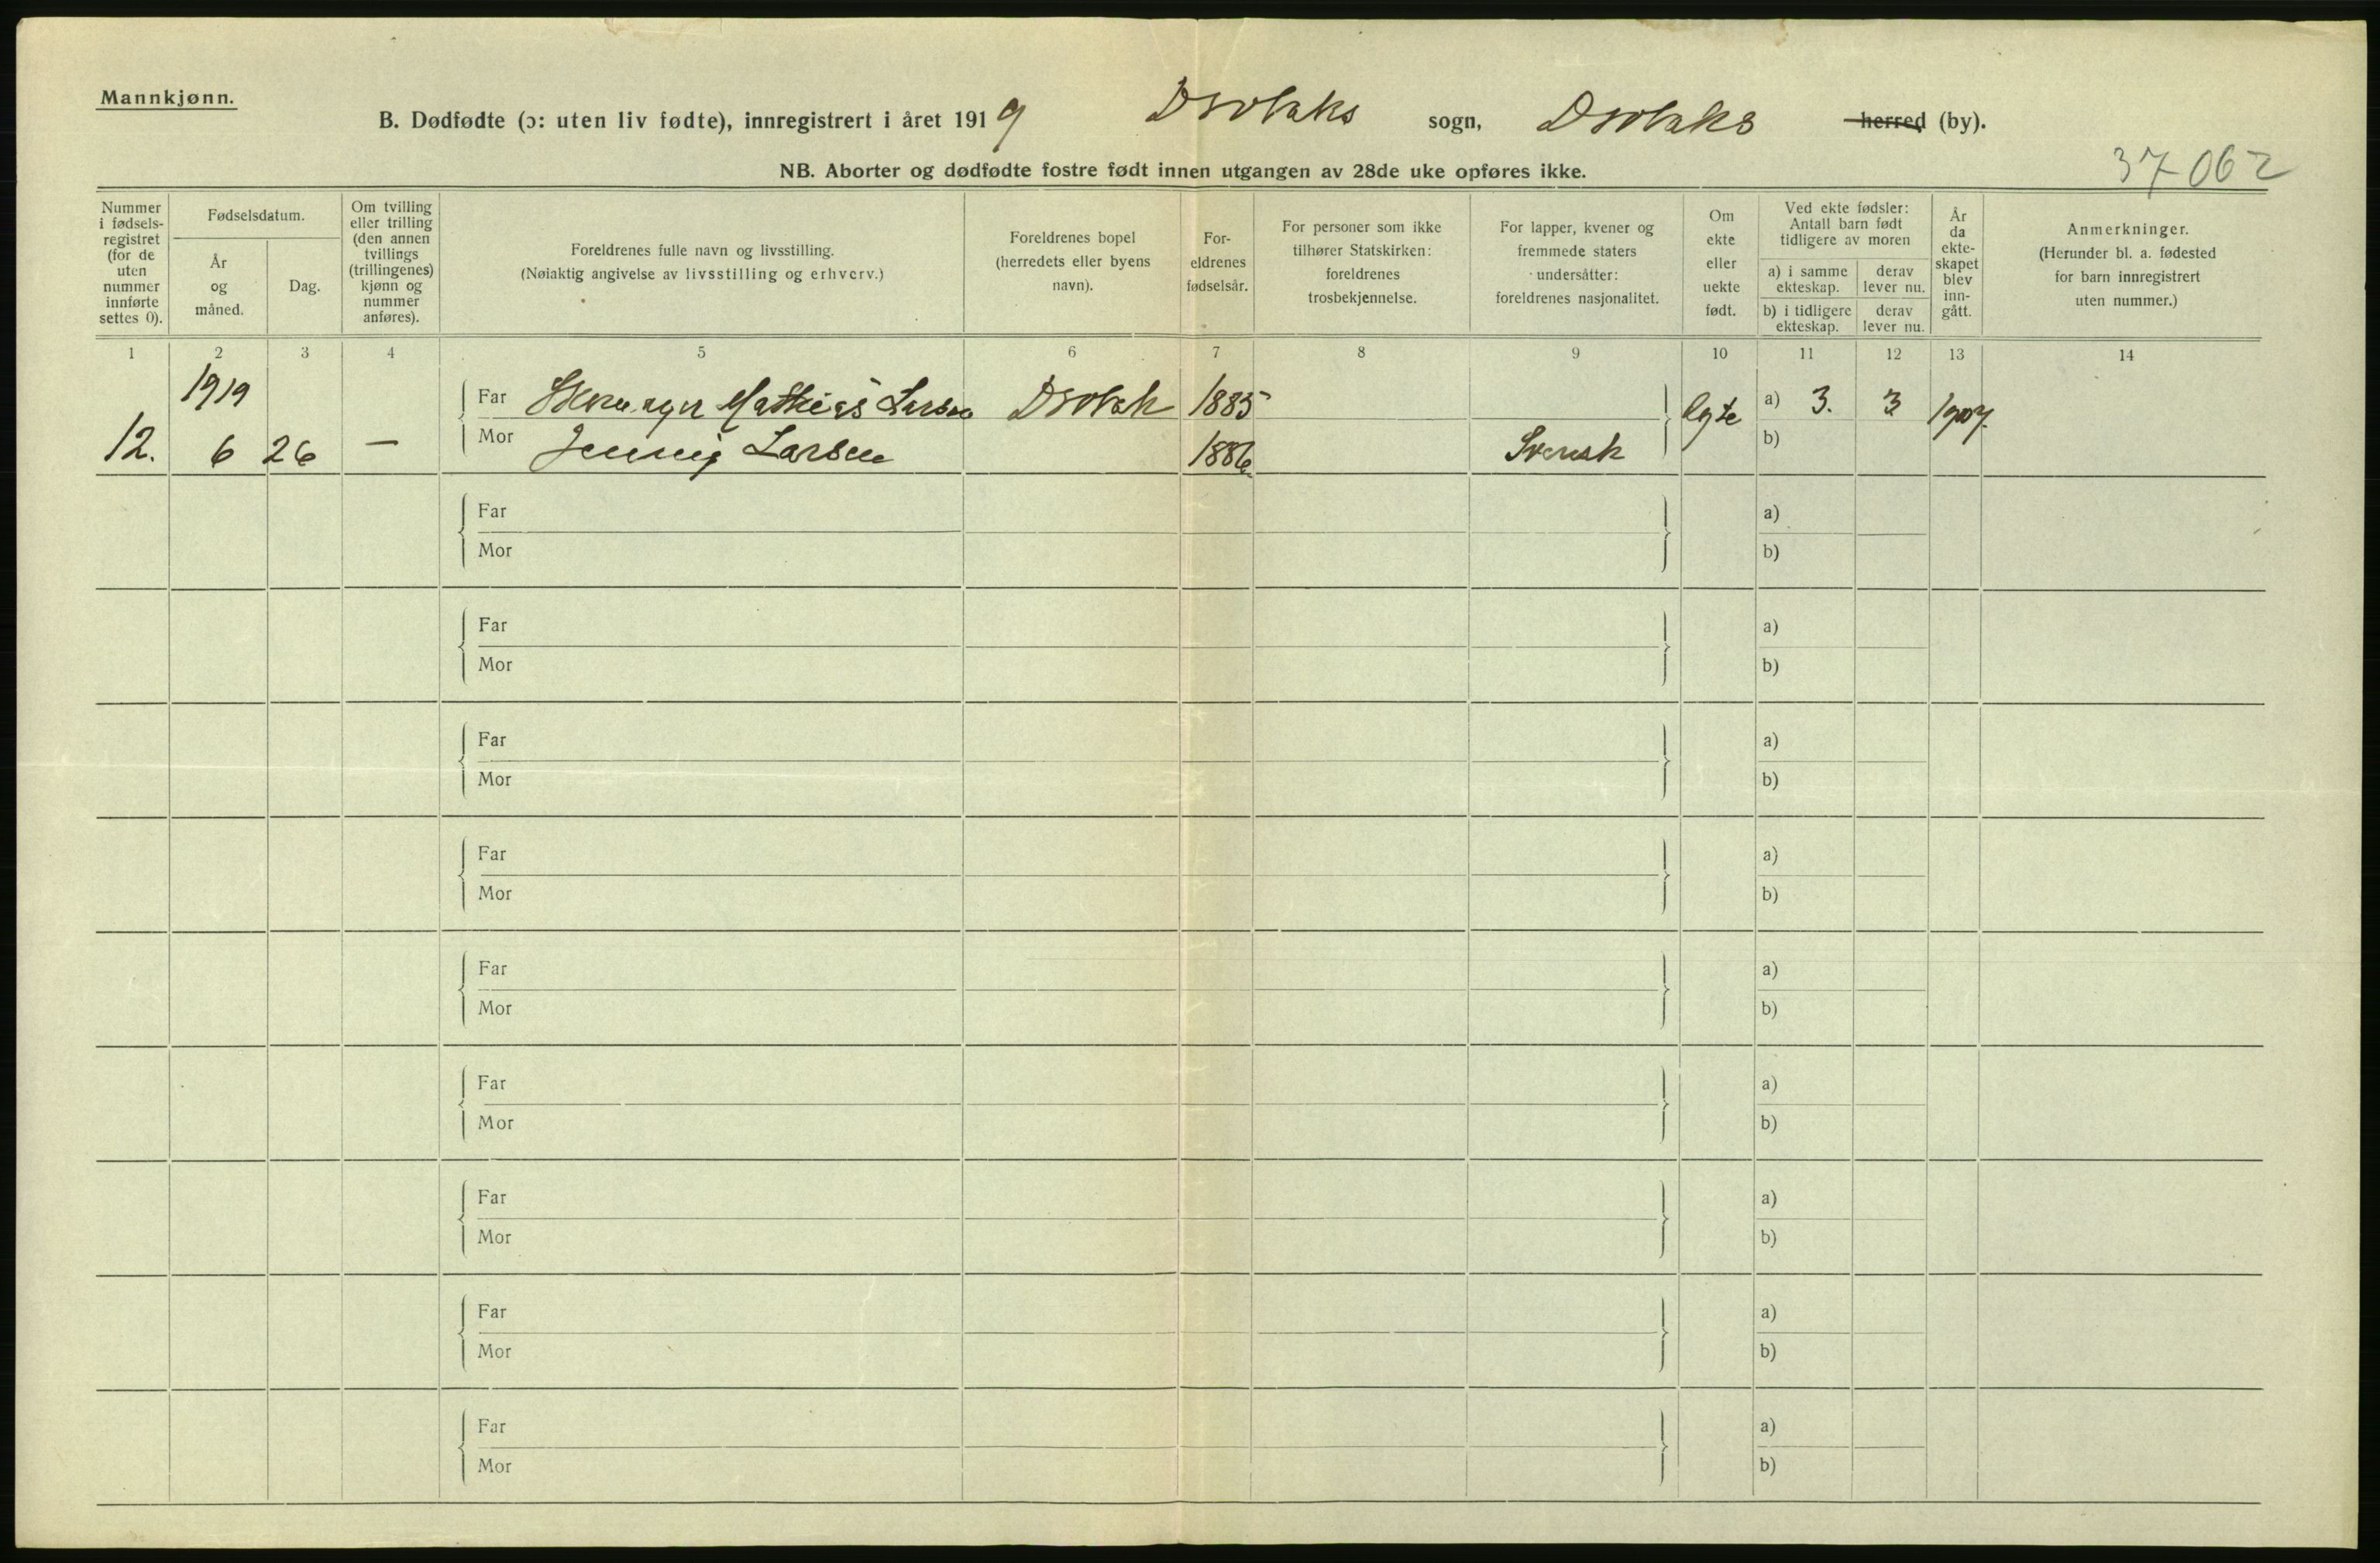 Mannkjønn.
B. Dødfødte (ɔ: uten liv fødte), innregistrert i året 1919 Drøbaks sogn, Drøbaks herred (by).
NB. Aborter og dødfødte fostre født innen utgangen av 28de uke opføres ikke.
37062
Nummer i fødsels-registret (for de uten nummer innførte settes 0).
Fødselsdatum.
År og måned.
Dag.
Om tvilling eller trilling (den annen tvillings (trillingenes) kjønn og nummer anføres).
Foreldrenes fulle navn og livsstilling.
(Nøiaktig angivelse av livsstilling og erhverv.)
Foreldrenes bopel (herredets eller byens navn).
For-eldrenes fødselsår.
For personer som ikke tilhører Statskirken: foreldrenes trosbekjennelse.
For lapper, kvener og fremmede staters undersåtter: foreldrenes nasjonalitet.
Om ekte eller uekte født.
Ved ekte fødsler: Antall barn født tidligere av moren
a) i samme ekteskap. derav lever nu.
b) i tidligere ekteskap. derav lever nu.
År da ekte-skapet blev inn-gått.
Anmerkninger.
(Herunder bl. a. fødested for barn innregistrert uten nummer.)
1 2 3 4 5 6 7 8 9 10 11 12 13 14
1919 Far Mathias Larsen Drøbak 1885 Egte a) 3. 3 1907.
12. 6 26 — Mor Jenny Larsen 1886 Svensk b)
Far a)
Mor b)
Far a)
Mor b)
Far a)
Mor b)
Far a)
Mor b)
Far a)
Mor b)
Far a)
Mor b)
Far a)
Mor b)
Far a)
Mor b)
Far a)
Mor b)